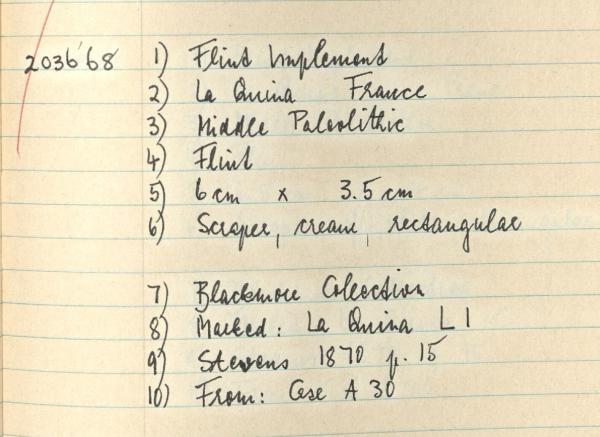 2036'68 1) Flint Implement
2) La Quina France
3) Middle Paleolithic
4) Flint
5) 6 cm x 3.5 cm
6) Scraper, cream, rectangular
7) Blackmore Collection
8) Marked: La Quina L 1
9) Stevens 1870 p. 15
10) From: Case A 30